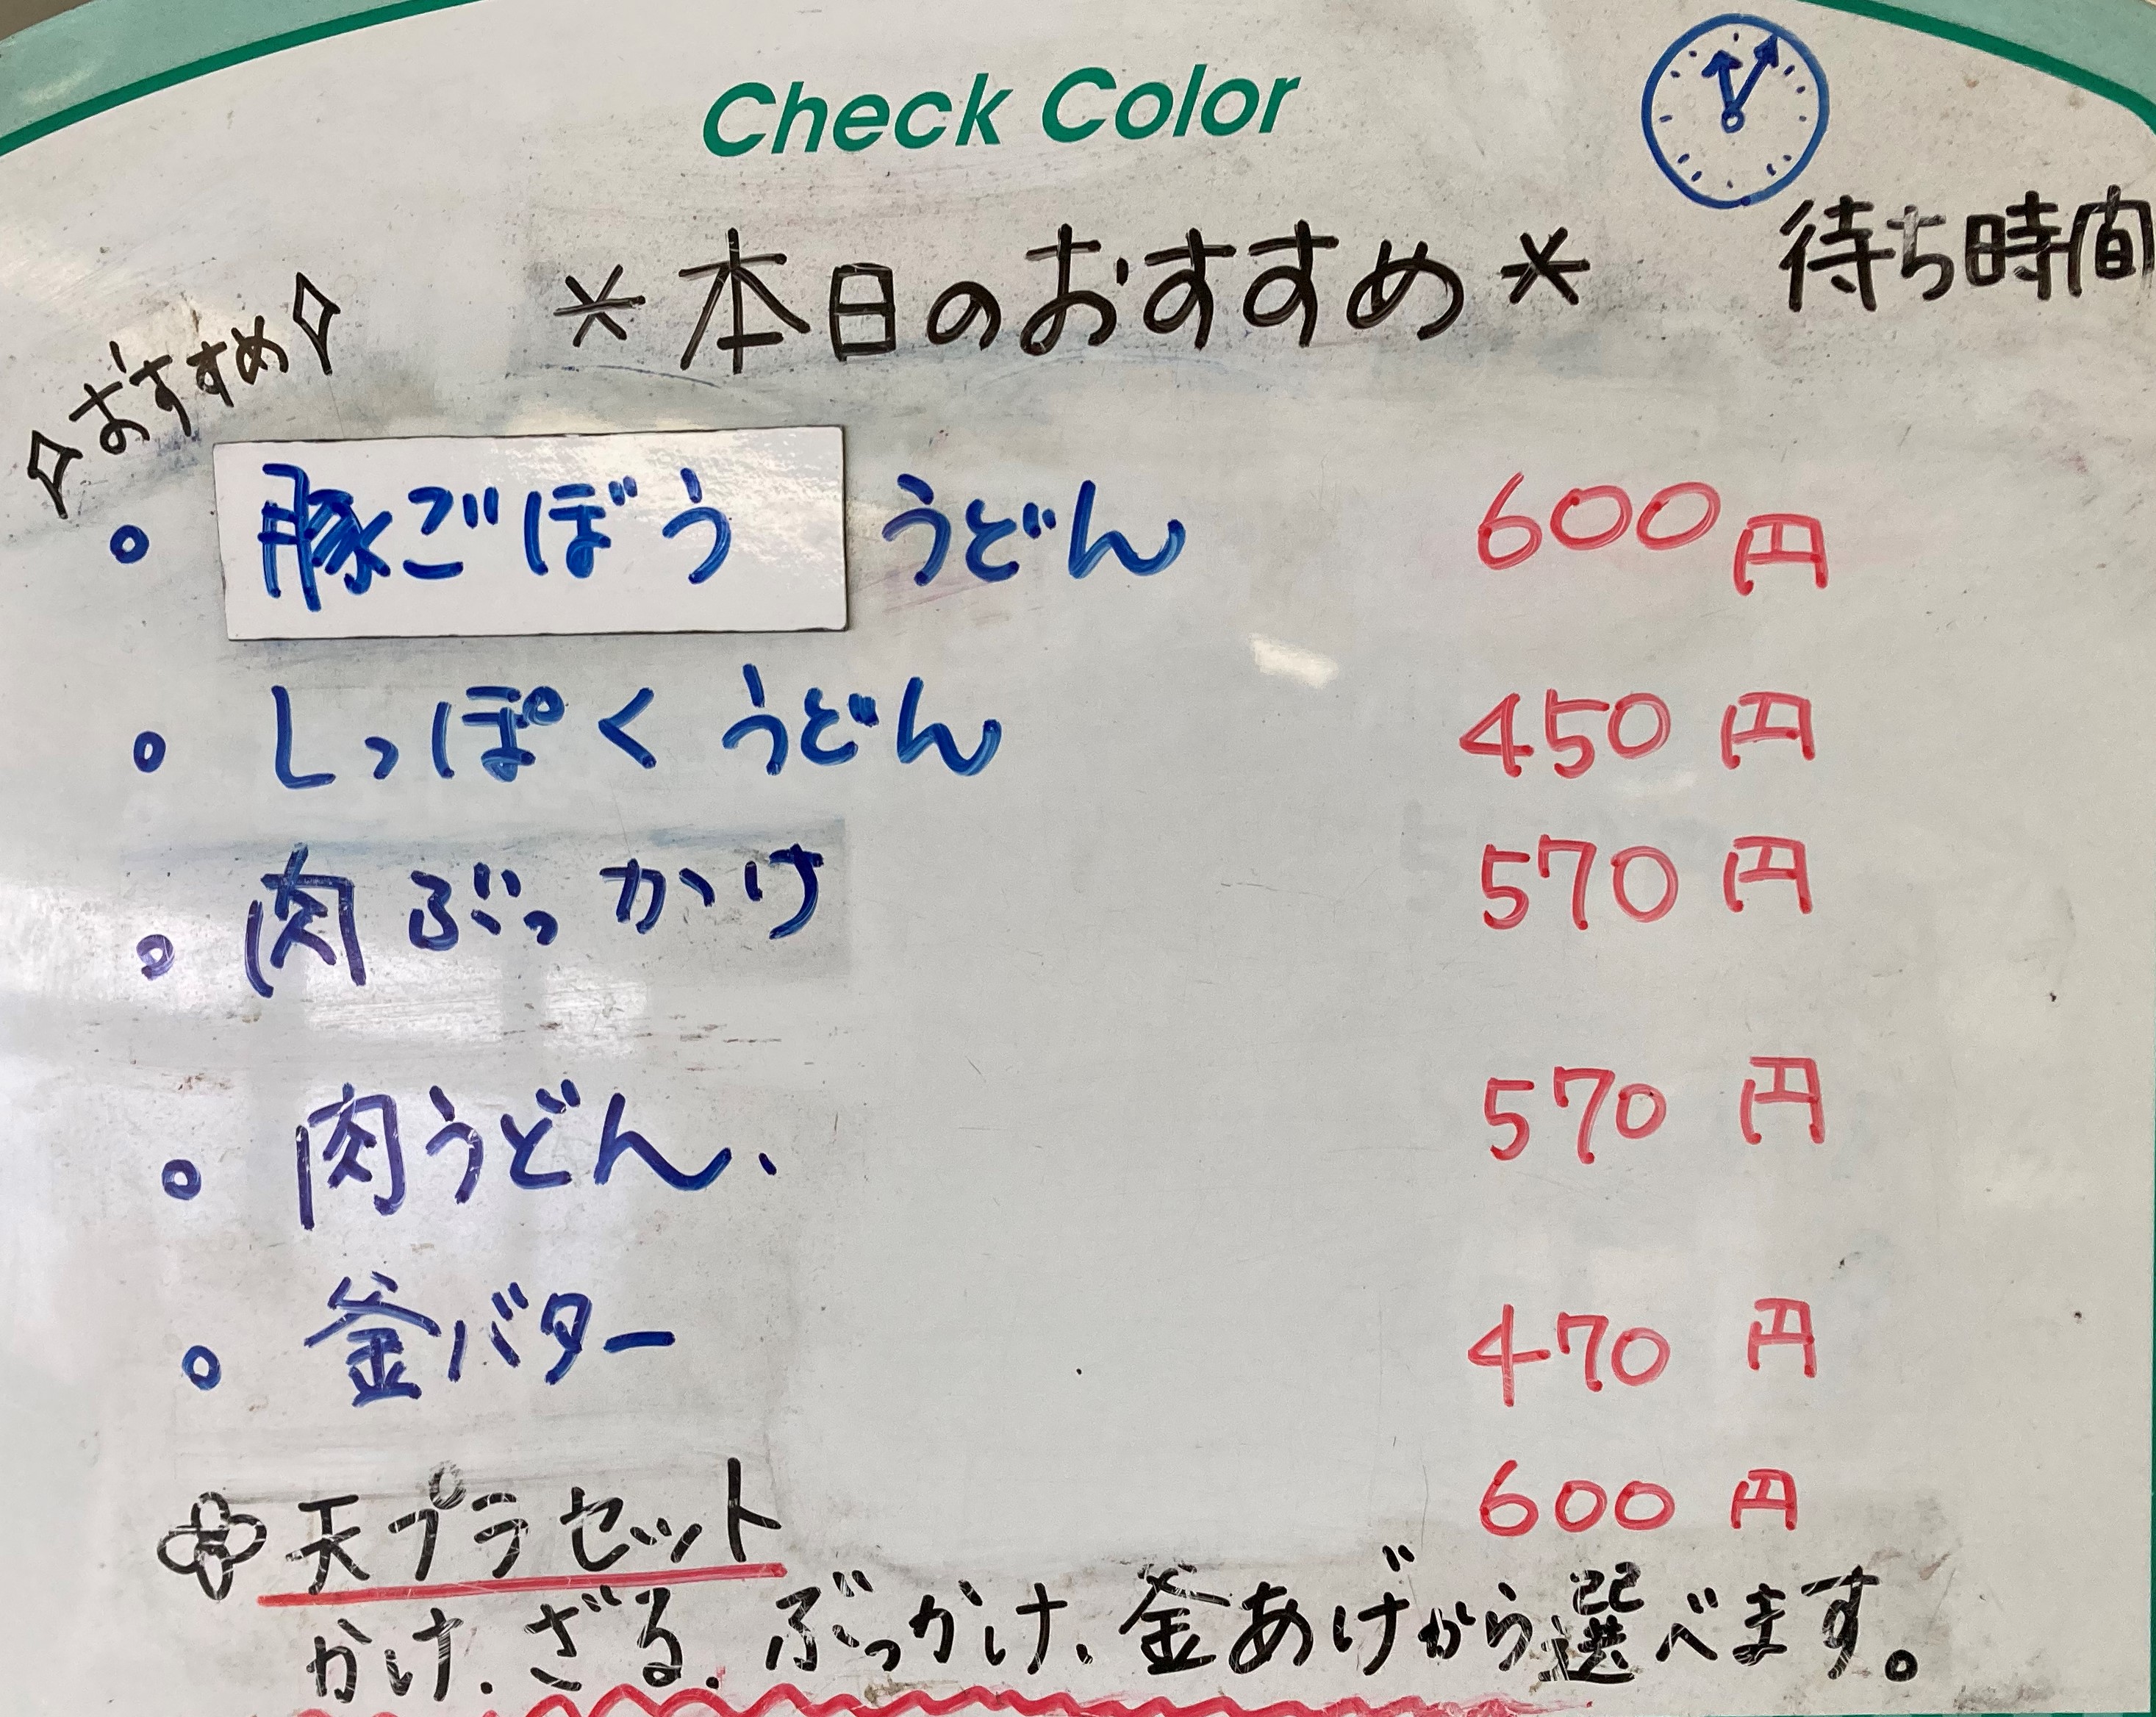 Check Color
待ち時間
＊本日のおすすめ＊
おすすめ
豚ごぼう うどん 600円
しっぽくうどん 450円
肉ぶっかけ 570円
肉うどん. 570円
釜バター 470円
天プラセット 600円
かけ.ざる.ぶっかけ.釜あげから選べます。